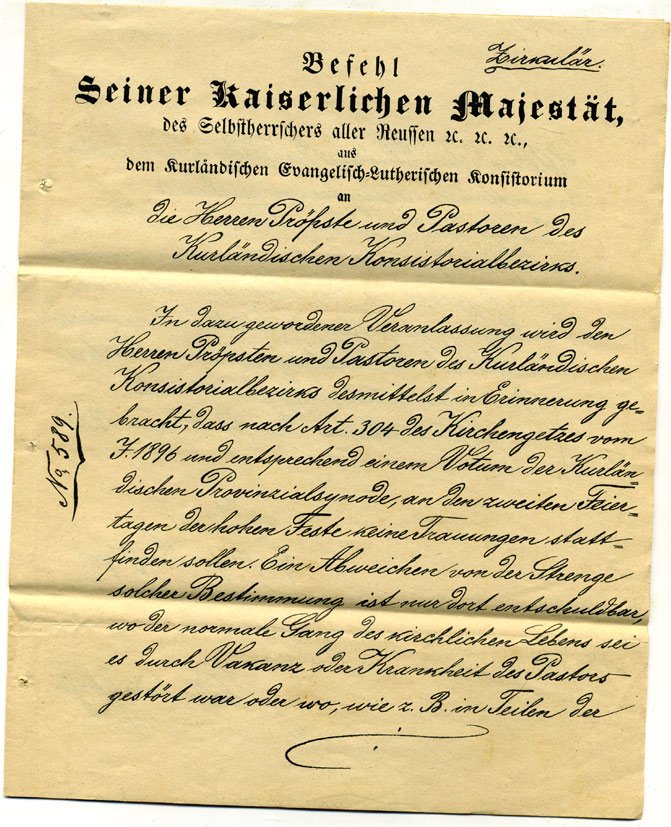 Zirkulär.
Befehl
Seiner Kaiserlichen Majestät,
des Selbstherrschers aller Reussen ꝛc. ꝛc. ꝛc.,
aus
dem Kurländischen Evangelisch-Lutherischen Konsistorium
an
die Herren Pröpste und Pastoren des
Kurländischen Konsistorialbezirks.
In dazu gewordener Veranlassung wird den
Herren Pröpsten und Pastoren des Kurländischen
Konsistorialbezirks desmittelst in Erinnerung ge-
bracht, dass nach Art. 304 des Kirchengetzes vom
J. 1896 und entsprechend einem Votum der Kurlän-
dischen Provinzialsynode, an den zweiten Feier-
tagen der hohen Feste keine Trauungen statt-
finden sollen. Ein Abweichen von der Strenge
solcher Bestimmung ist nur dort entschuldbar,
wo der normale Gang des kirchlichen Lebens sei
es durch Vakanz oder Krankheit des Pastors
gestört war oder wo, wie z. B. in Teilen der
No 589.